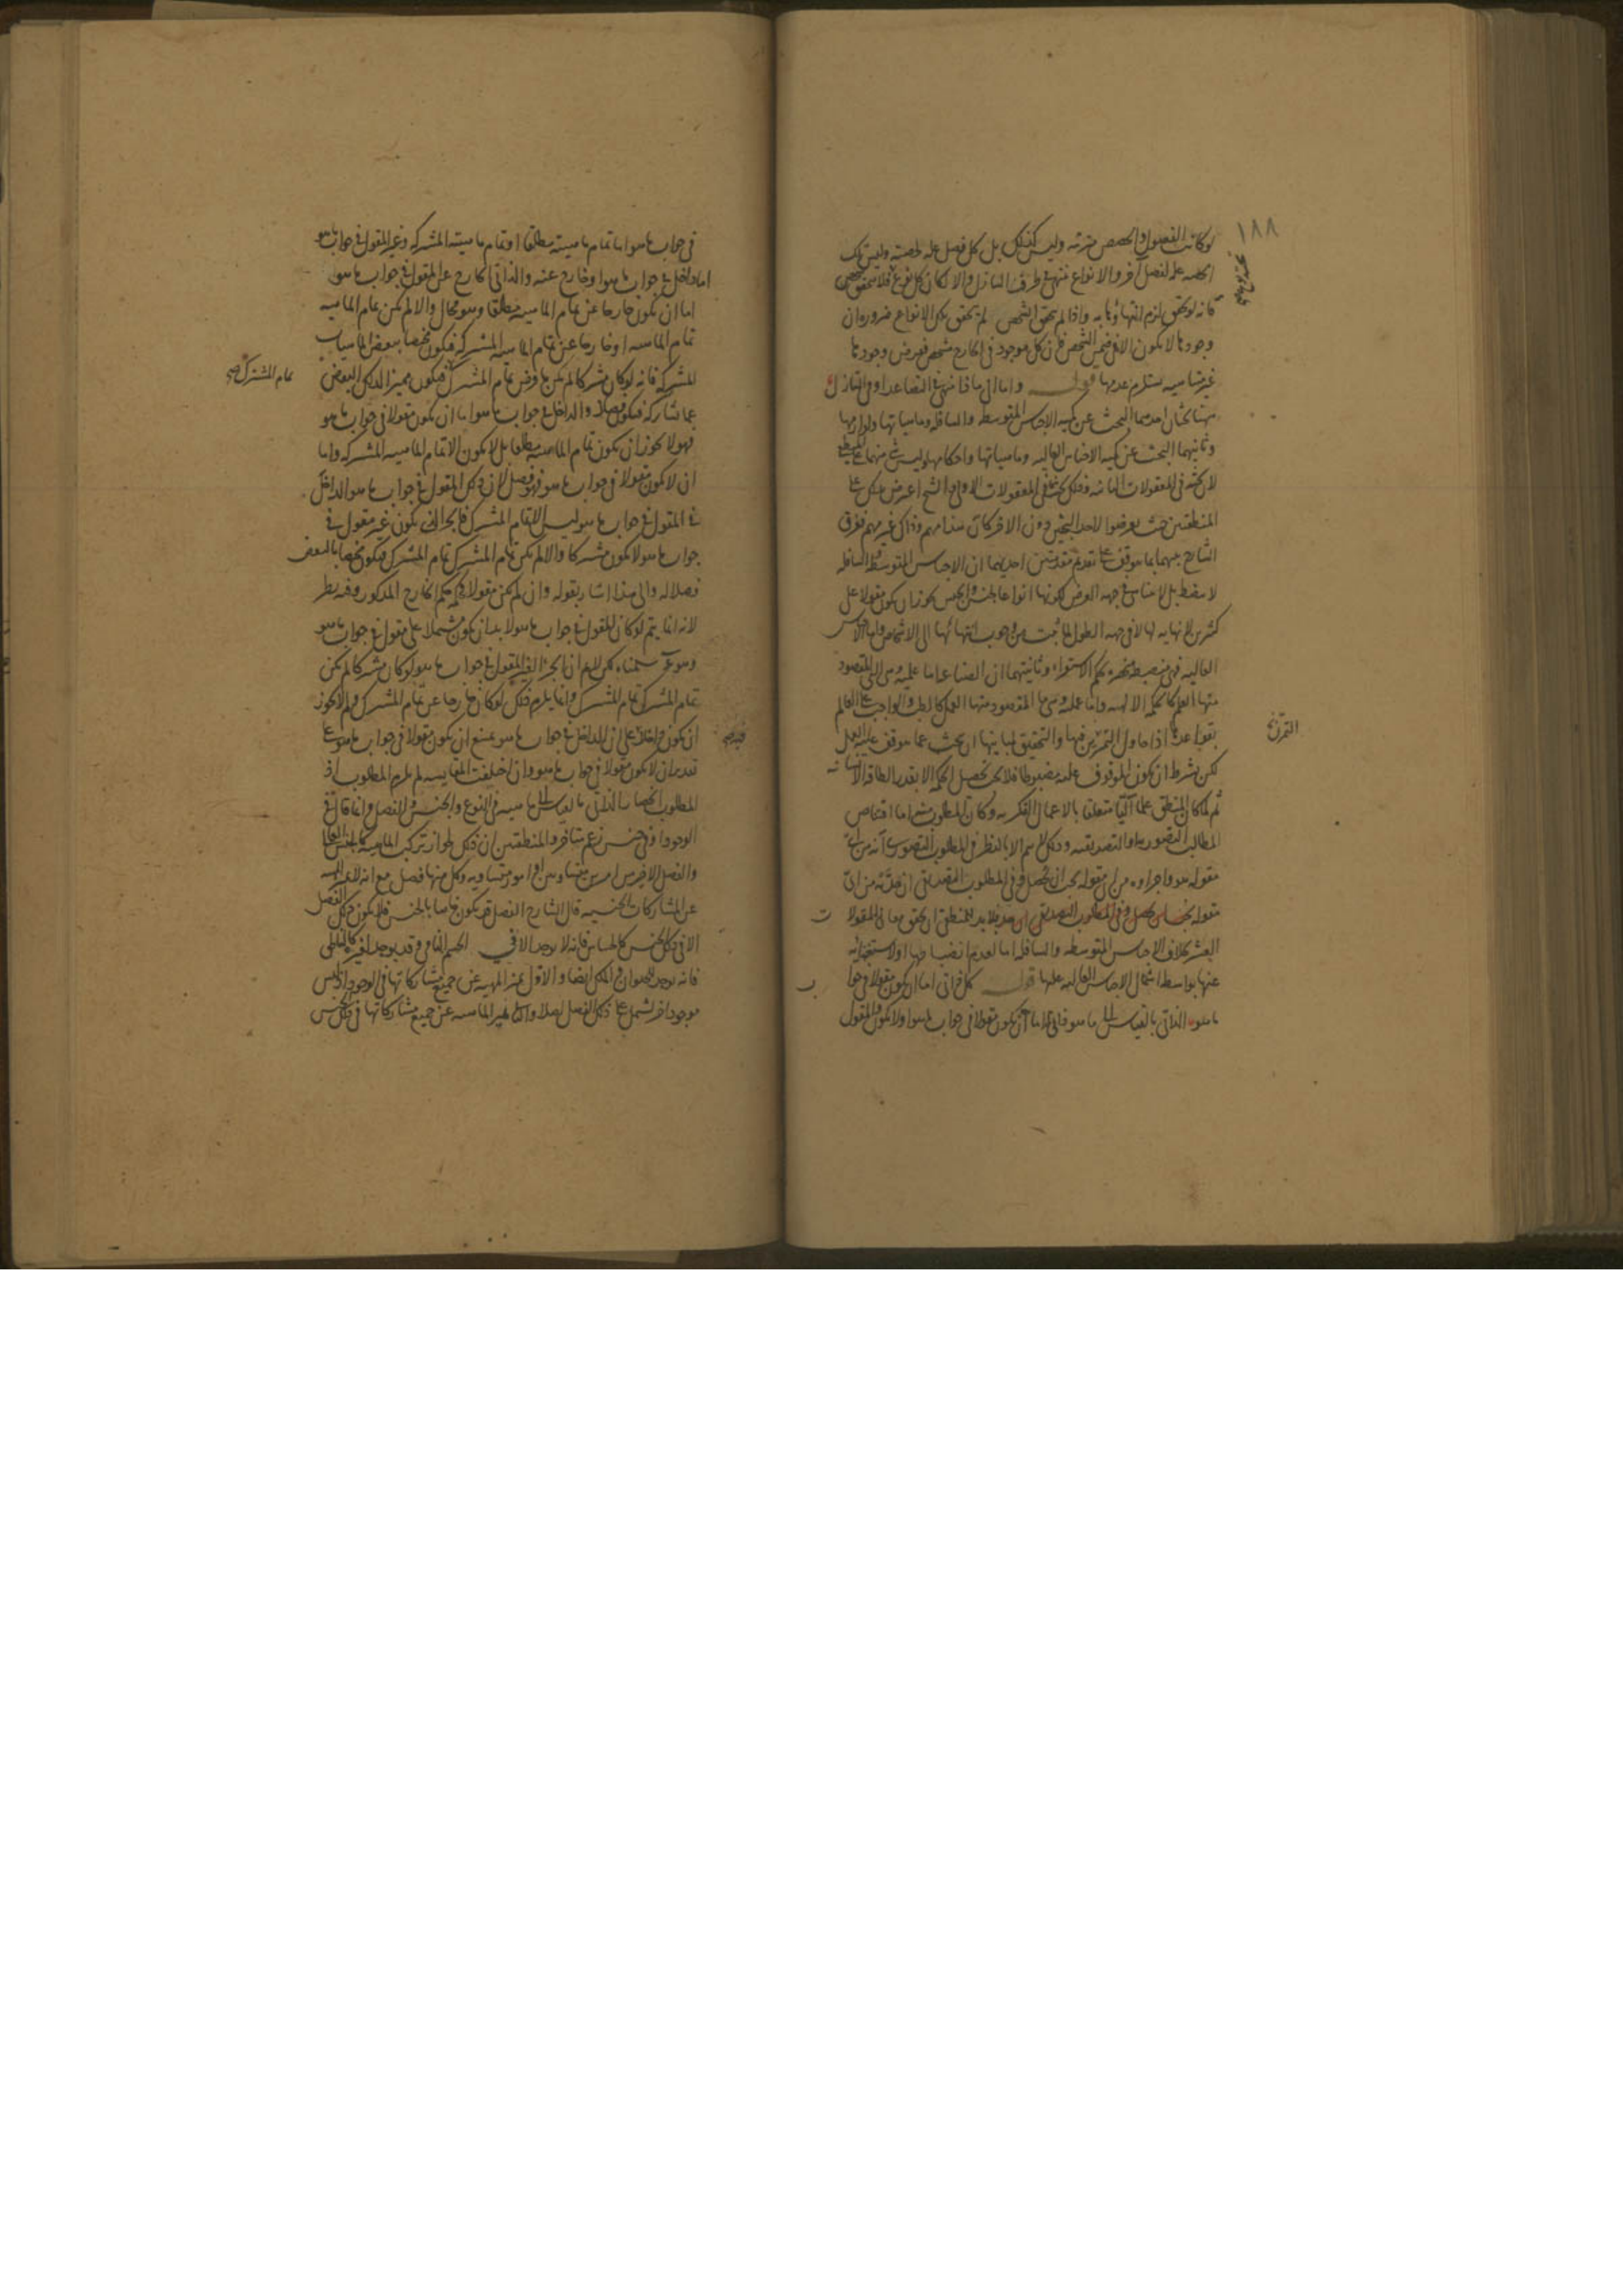 ١٨٨
لو كانت الفصول والحصص مترتبة وليس كذلك بل كل فصل علة لحصته وليس تلك
الحصة علة لفصل آخر والانواع تنتهي في طرف التنازل والا لكان كل نوع فلا يتحقق شخص
فانه لو تحقق لزم انتهاؤها به واذا لم يتحقق الشخص لم يتحقق تلك الانواع ضرورة ان
وجودها لا يكون الا في ضمن الشخص فان كل موجود في الخارج مشخص ففرض وجودها
غير متناهية يستلزم عدمها قوله واما الى ماذا ينتهي في التصاعد او في التنازل
هنا بحثان احدهما البحث عن كمية الاجناس المتوسطة والسافلة وماهياتها ولوازمها
وثانيهما البحث عن كمية الاجناس العالية وماهياتها واحكامها وليس شيء منهما على المنطقي
لان بحثه في المعقولات الثانية وذلك بحث في المعقولات الاولى والشيخ اعترض بذلك على
المنطقيين حيث تعرضوا لاحد البحثين دون الاخر كان هذا مهم وذاك غير مهم ففرق
الشارح بينهما بما يتوقف على تقديم مقدمتين احديهما ان الاجناس المتوسطة والسافلة
لا ينضبط بل لا تتناهى في جهة العرض لكونها انواعا لجنس والجنس يجوز ان يكون مقولا على
كثيرين لا نهاية لها لا في جهة الطول لما ثبت من وجوب انتهائها الى الاشخاص واما الاجناس
العالية فهي منضبطة منحصرة بحكم الاستقراء وثانيتهما ان الصناعة اما علمية وهي التي المقصود
منها العلم كالحكمة الالهية واما عملية وهي ما المقصود منها العمل كالطب والواجب على العالم
بقواعدها اذا حاول التمرن فيها والتحقيق لمباينها ان يبحث عما يتوقف عليه العمل
لكن بشرط ان يكون الموقوف عليه مضبوطا فلا يجب تحصيل الحكمة الا بقدر الطاقة الانسانية
ثم لما كان المنطق علما آليا متعلقا بالاعمال الفكرية وكان المطلوب منه اما اقتناص
المطالب التصورية او التصديقية وذلك لا يتم الا بالنظر في المطلوب التصوري انه من اي
مقولة هو واجزاؤه من اي مقولة يجب ان يحصل وفي المطلوب التصديقي ان حده من اي
مقولة فلا بد للمنطقي ان يحقق معاني المقولات
العشر بخلاف الاجناس المتوسطة والسافلة اما لعدم انضباطها او لاستغنائه
عنها بواسطة اشتمال الاجناس العالية عليها قوله كل ذاتي اما ان يكون مقولا في جواب
ما هو الذاتي بالقياس الى ما هو ذاتي له اما ان يكون مقولا في جواب ما هو او لا يكون والمقول
التمرن
في جواب ما هو اما تمام ماهيته مطلقا او تمام ماهيته المشتركة وغير المقول في جواب ما هو
اما داخل في جواب ما هو او خارج عنه والذاتي الخارج عن المقول في جواب ما هو
اما ان يكون خارجا عن تمام الماهية مطلقا وهو محال والا لم يكن تمام الماهية
تمام الماهية او خارجا عن تمام الماهية المشتركة فيكون مختصا ببعض الماهيات
المشتركة فانه لو كان مشتركا لم يكن ما فرض تمام المشترك فيكون مميزا لذلك البعض
تمام المشترك صح
عما شاركه فيكون فصلا والداخل في جواب ما هو اما ان يكون مقولا في جواب ما هو
فهو لا يجوز ان يكون تمام الماهية مطلقا بل لا يكون الا تمام الماهية المشتركة واما
ان لا يكون مقولا في جواب ما هو فهو فصل لان ذلك المقول في جواب ما هو الداخل
في المقول في جواب ما هو ليس الا تمام المشترك فالجزء الذي يكون غير مقول في
جواب ما هو لا يكون مشتركا والا لم يكن تمام المشترك تمام المشترك فيكون مختصا بالبعض
فصلا له والى هذا اشار بقوله وان لم يكن مقولا فحكمه حكم الخارج المذكور وفيه نظر
لانه انما يتم لو كان المقول في جواب ما هو لا بد ان يكون مشتملا على مقول في جواب ما هو
وهو مم سلمناه لكن لا نم ان الجزء الغير المقول في جواب ما هو لو كان مشتركا لم يكن
تمام المشترك تمام المشترك وانما يلزم ذلك لو كان خارجا عن تمام المشترك ولم لا يجوز
ان يكون داخلا على ان الداخل في جواب ما هو يمتنع ان يكون مقولا في جواب ما هو على
تقدير ان لا يكون مقولا في جواب ما هو وان اختلفت المقايسة لم يلزم المطلوب اذ
المطلوب انحصار الذاتي بالقياس الى ماهية في النوع والجنس والفصل وانما قال في
الوجود او في جنس زعم متأخرو المنطقيين ان ذلك لجواز تركب الماهية كالجنس العالي
والفصل الاخير من امرين متساويين او امور متساوية وكل منها فصل مع انه لا يميز الماهية
عن المشاركات الجنسية قال الشارح الفصل قد يكون خاصا بالجنس فلا يكون ذلك الفصل
الا في ذلك الجنس كالحساس فانه لا يوجد الا في الجسم النامي وقد يوجد في غيره كالناطق
فانه يوجد للحيوان وللملك ايضا والاول يميز الماهية عن جميع مشاركاتها في الوجود اذ ليس
موجود اخر يشتمل على ذلك الفصل اصلا والثاني يميز الماهية عن جميع مشاركاتها في ذلك الجنس